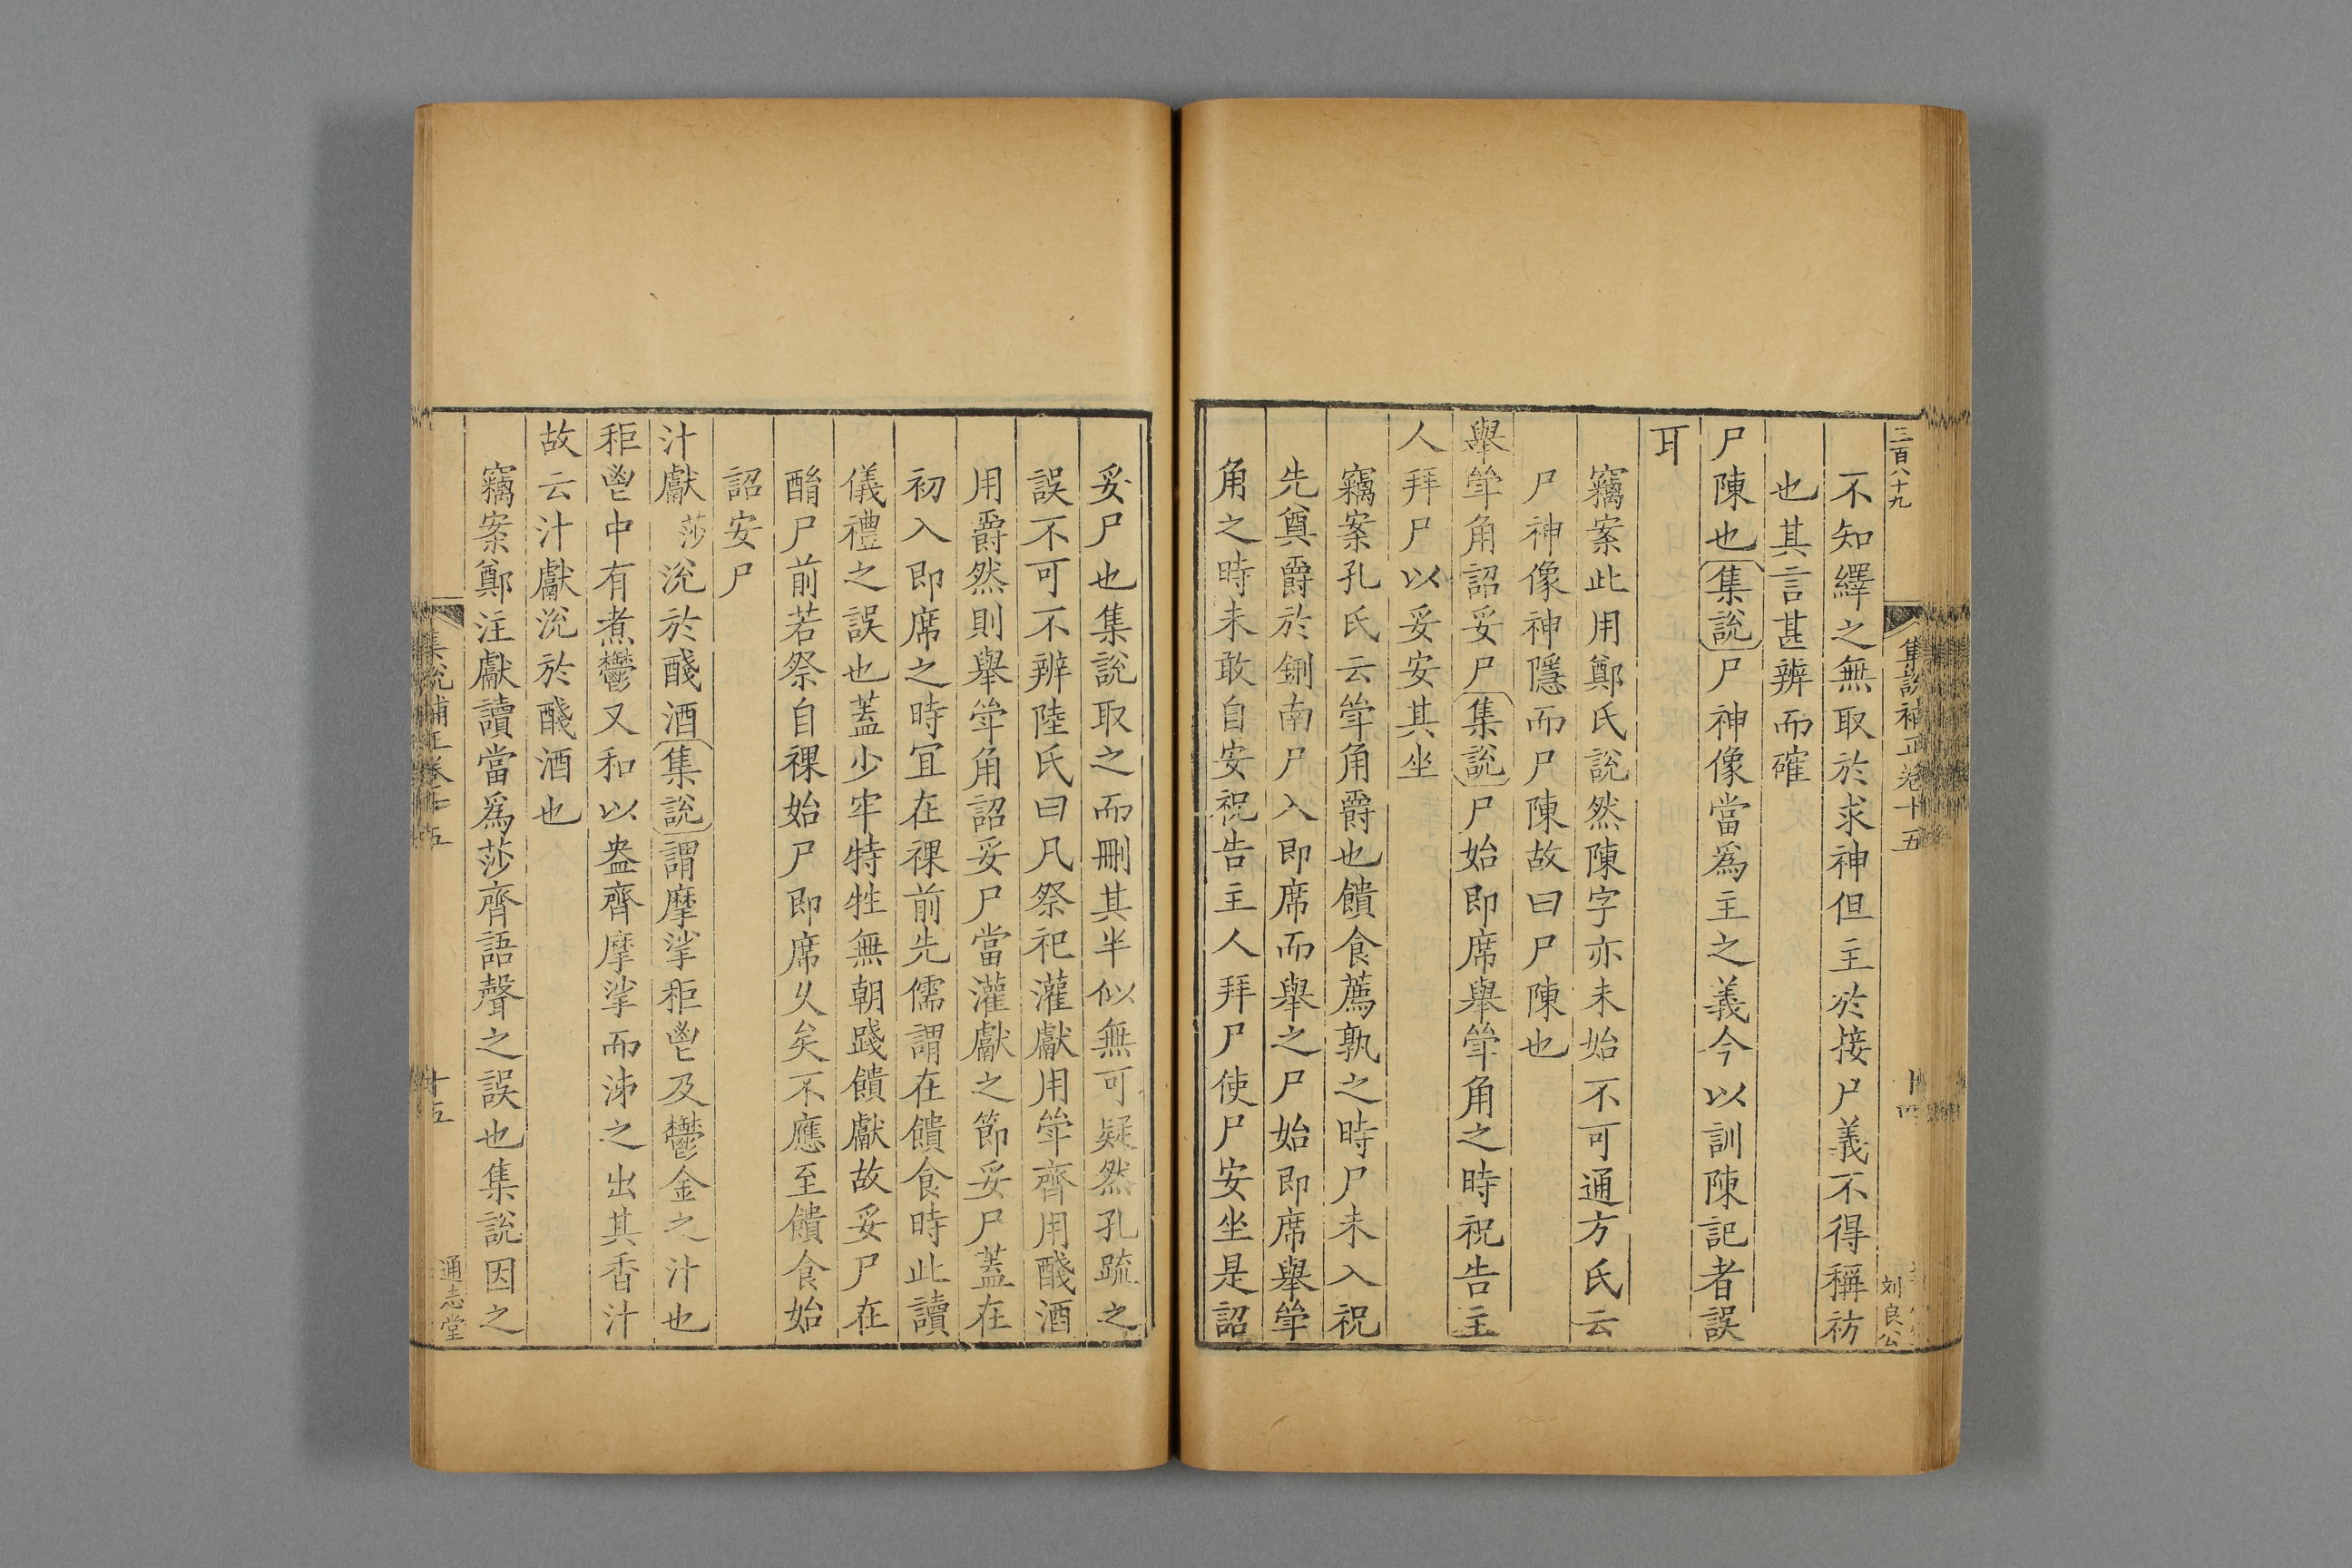 三百八十九
集說補正卷十五
十四
刘良公
不知繹之無取於求神但主於接尸義不得稱祊
也其言甚辨而確
尸陳也集說尸神像當爲主之義今以訓陳記者誤
耳
竊案此用鄭氏說然陳字亦未始不可通方氏云
尸神像神隱而尸陳故曰尸陳也
舉斝角詔妥尸集說尸始即席舉斝角之時祝告主
人拜尸以妥安其坐
竊案孔氏云斝角爵也饋食薦孰之時尸未入祝
先奠爵於鉶南尸入即席而舉之尸始即席舉斝
角之時未敢自安祝告主人拜尸使尸安坐是詔
妥尸也集說取之而刪其半似無可疑然孔疏之
誤不可不辨陸氏曰凡祭祀灌獻用斝齊用醆酒
用爵然則舉斝角詔妥尸當灌獻之節妥尸蓋在
初入即席之時宜在祼前先儒謂在饋食時此讀
儀禮之誤也蓋少牢特牲無朝踐饋獻故妥尸在
酳尸前若祭自祼始尸即席久矣不應至饋食始
詔安尸
汁獻莎涗於醆酒集說謂摩挲秬鬯及鬱金之汁也
秬鬯中有煮鬱又和以盎齊摩挲而泲之出其香汁
故云汁獻涗於醆酒也
竊案鄭注獻讀當爲莎齊語聲之誤也集說因之
集說補正卷十五
十五
通志堂